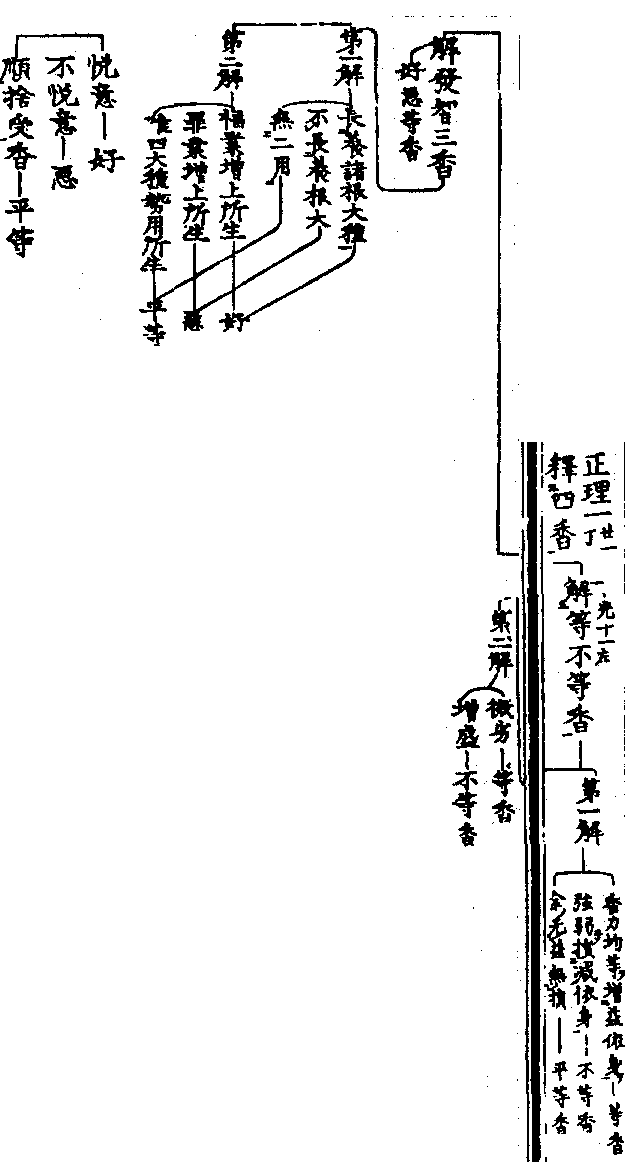 正理一廿一丁
釋四香
一、光十一左
解等不等香
第一解
香力均等增益依身—等香
強弱損減依身—不等香
余无益無損—平等香
第二解
微劣—等香
增盛—不等香
解發智三香
好惡等香
第一解
長養諸根大種
不長養根大
無二用
第二解
福業增上所生
罪業增上所生
唯四大種勢用所生
好
惡
平等
悅意—好
不悅意—惡
順捨受香—平等